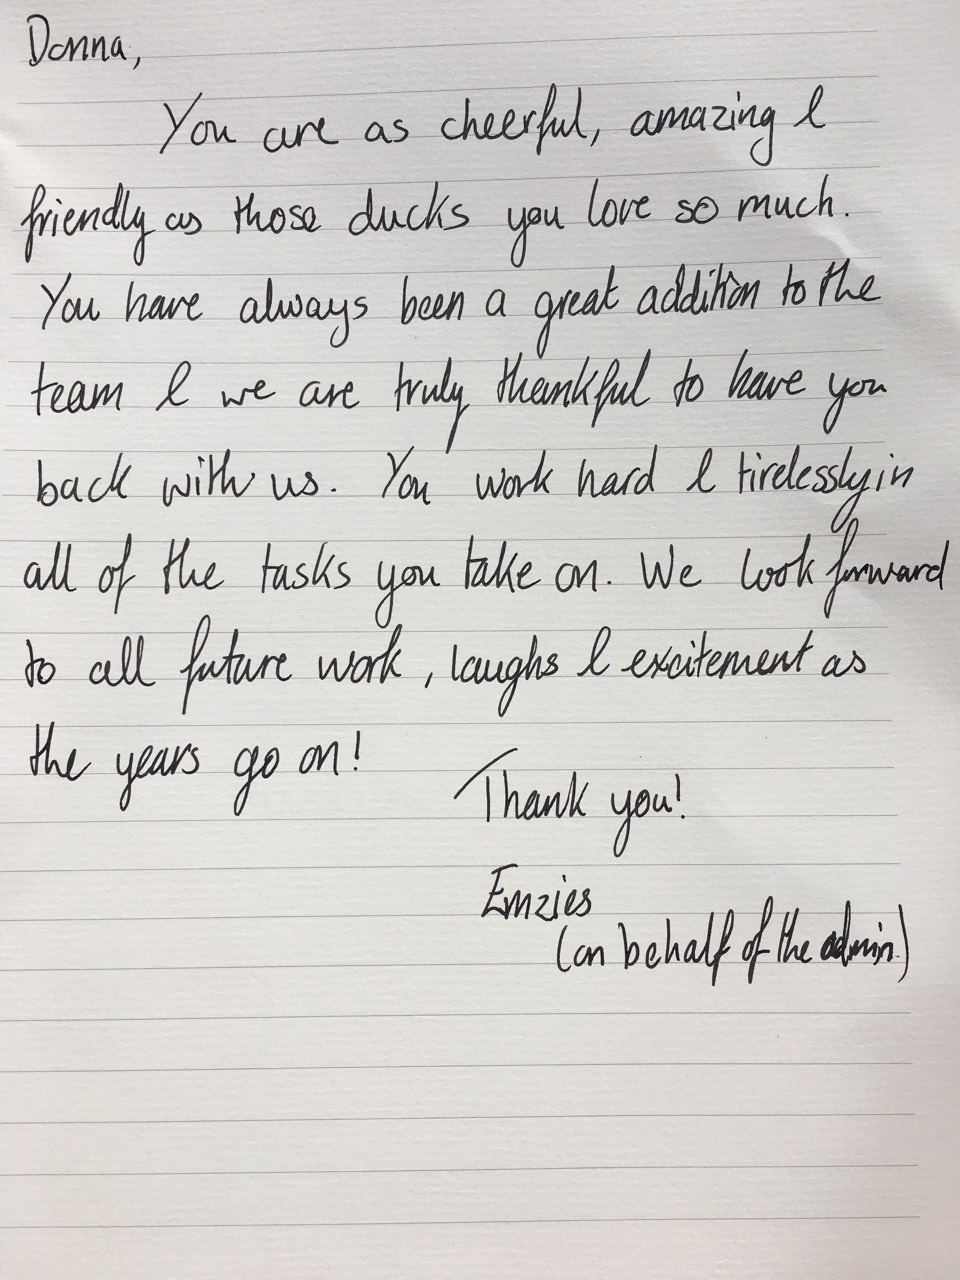 Donna,
You are as cheerful, amazing &
friendly as those ducks you love so much.
You have always been a great addition to the
team & we are truly thankful to have you
back with us. You work hard & tirelessly in
all of the tasks you take on. We look forward
to all future work, laughs & excitement as
the years go on!
Thank you!
Emzies
(on behalf of the admin.)